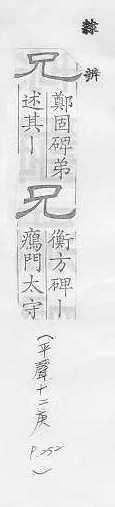 隸辨
兄
鄭固碑弟
述其丨
兄
衡方碑丨
鴈門太守
(平聲十二庚 P.252)